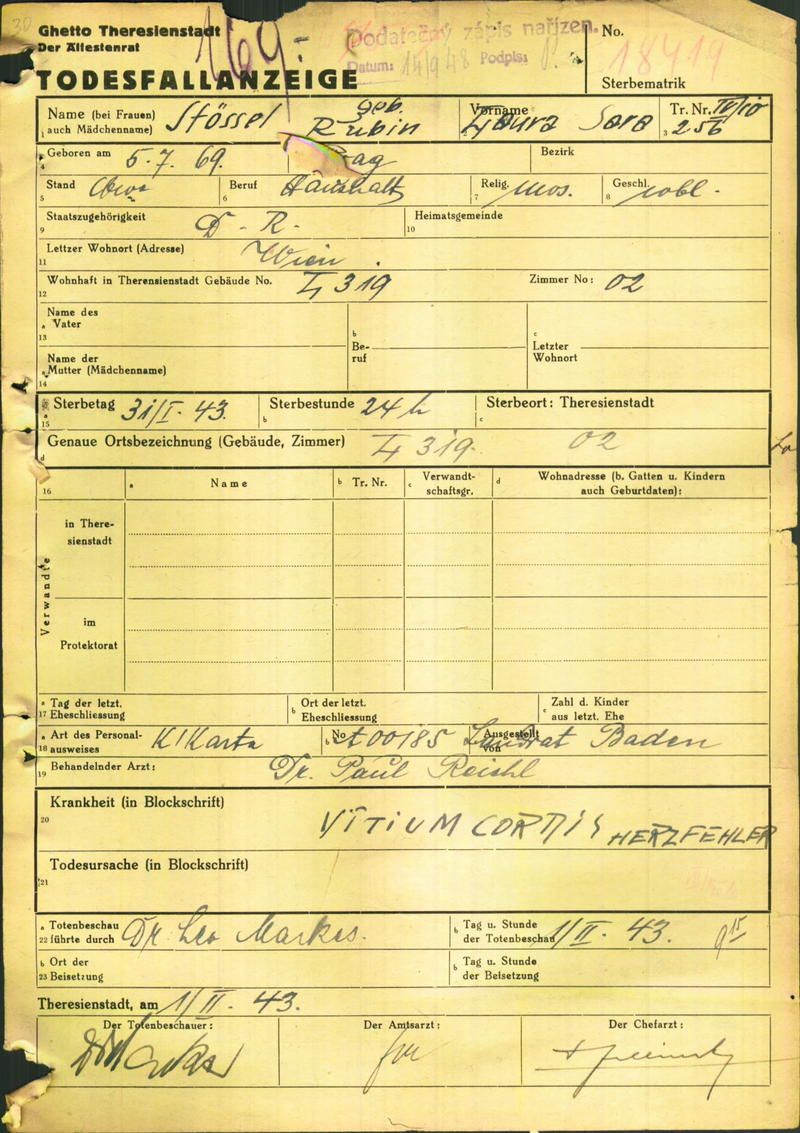 30
Ghetto Theresienstadt
Der Ältestenrat
169.-
Dodatečný zápis nařízen.
Datum: 14/9 48 Podpis:
No.
18419
TODESFALLANZEIGE
Sterbematrik
Name (bei Frauen) Stössel geb. Vorname Tr. Nr. IV/10
1 auch Mädchenname) Rubin Laura Sara 3 256
Geboren am 5.7.69. Bezirk
4
Stand Beruf Haushalt Relig. mos. Geschl. wbl.
5 6 7 8
Staatszugehörigkeit D.-R.- Heimatsgemeinde
9 10
Lettzer Wohnort (Adresse) Wien.
11
Wohnhaft in Therensienstadt Gebäude No. L 319 Zimmer No: 02
12
Name des
a Vater
13
b
Be-
ruf
c
Letzter
Wohnort
Name der
a Mutter (Mädchenname)
14
Sterbetag 31/I. 43. Sterbestunde 24 h Sterbeort: Theresienstadt
a 15 b c
Genaue Ortsbezeichnung (Gebäude, Zimmer) L 319. 02
d
16 a Name b Tr. Nr. c Verwandt-schaftsgr. d Wohnadresse (b. Gatten u. Kindern auch Geburtdaten):
Verwandte
in There-
sienstadt
im
Protektorat
a Tag der letzt. b Ort der letzt. c Zahl d. Kinder
17 Eheschliessung Eheschliessung aus letzt. Ehe
a Art des Personal- K/Karta b No 00185 Ausgestellt Landrat Baden
18 ausweises von
Behandelnder Arzt: Dr. Paul
19
Krankheit (in Blockschrift)
20 VITIUM CORDIS HERZFEHLER
Todesursache (in Blockschrift)
21
a Totenbeschau Dr Leo Markus. b Tag u. Stunde 1/II. 43. 9 15
22 führte durch der Totenbeschau
b Ort der b Tag u. Stunde
23 Beisetzung der Beisetzung
Theresienstadt, am 1/II. 43.
Der Totenbeschauer: Der Amtsarzt: Der Chefarzt: